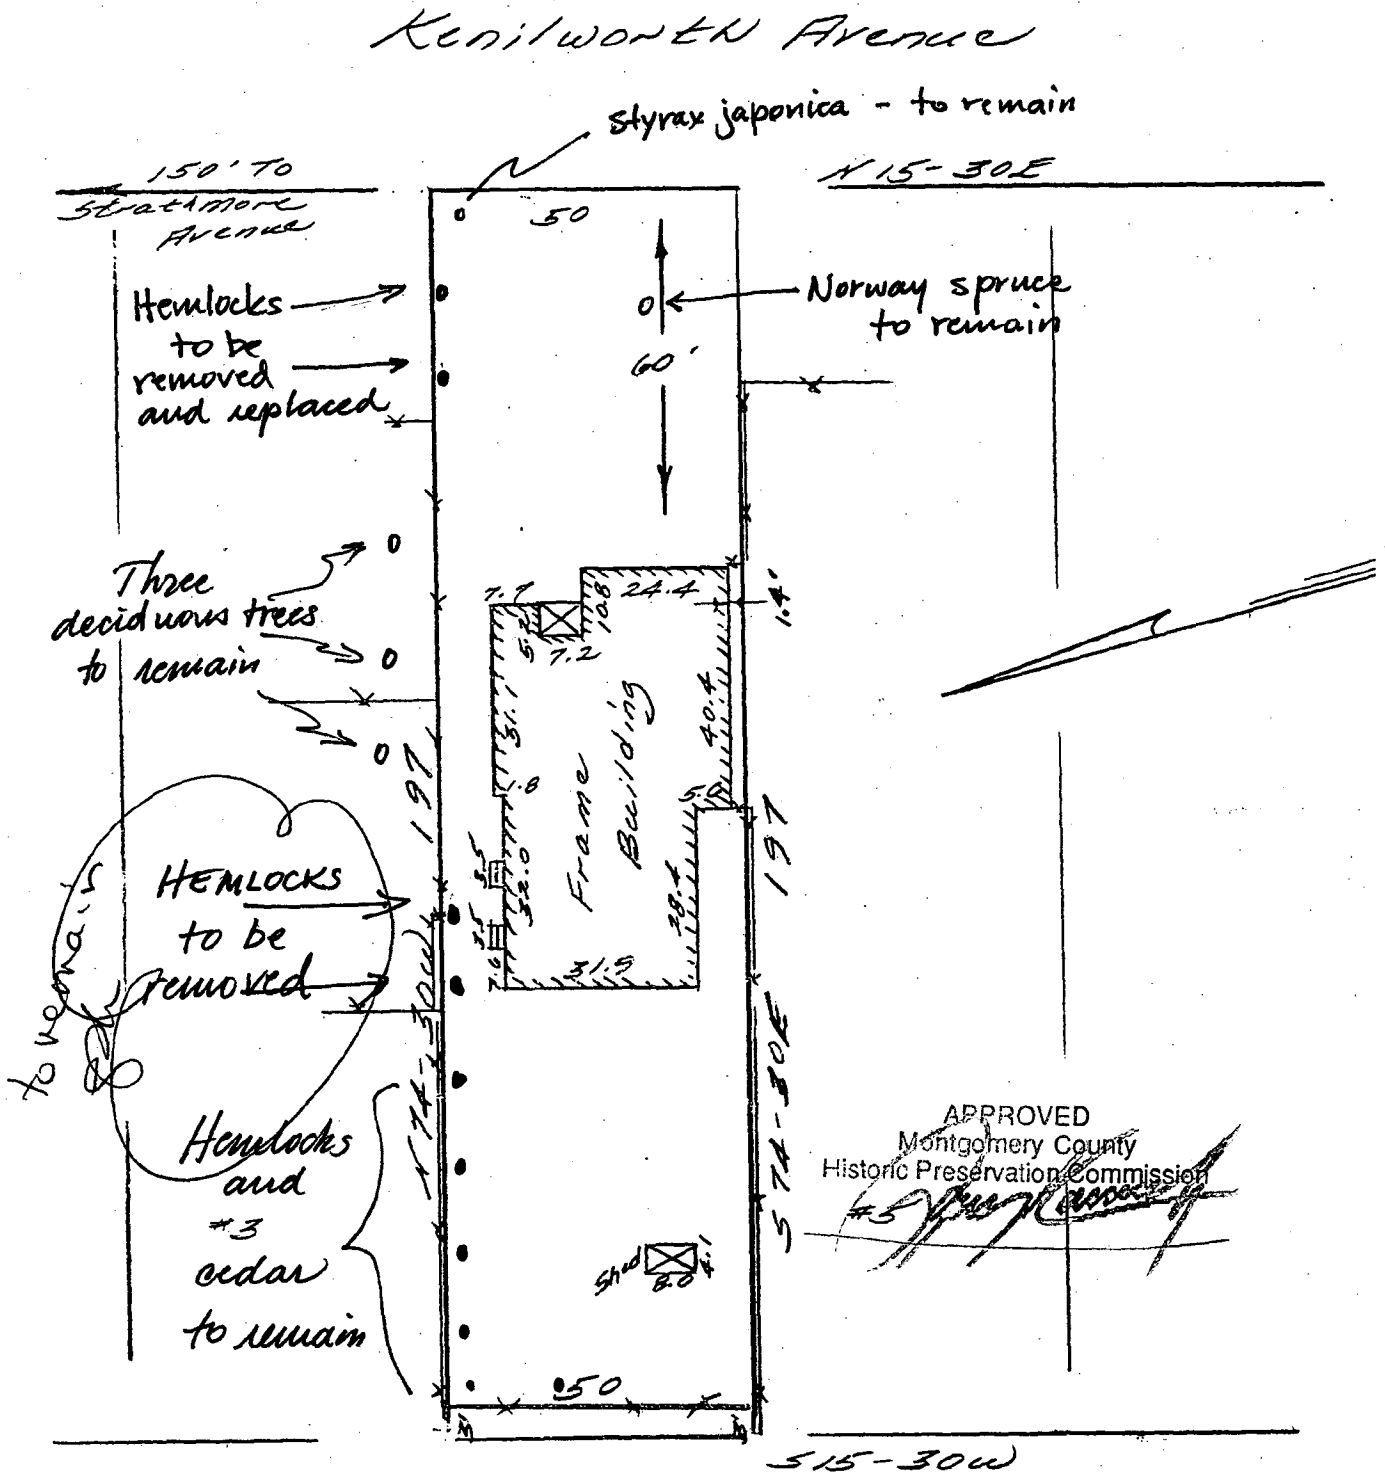 Kenilworth Avenue
styrax japonica - to remain
150' To
Strathmore
Avenue
N 15-30E
50
Hemlocks
to be
removed
and replaced
Norway spruce
to remain
60'
Three
deciduous trees
to remain
7.7
5.2
7.2
10.8
24.4
1.4'
31.1
40.4
1.8
5.0
Frame
Building
197
197
HEMLOCKS
to be
removed
to remain
3.5
3.5
32.0
28.4
7.6
31.9
N 74-30W
S 74-30E
Hemlocks
and
#3
cedar
to remain
Shed
8.0
4.1
APPROVED
Montgomery County
Historic Preservation Commission
#5
50
3'
3'
S 15-30W